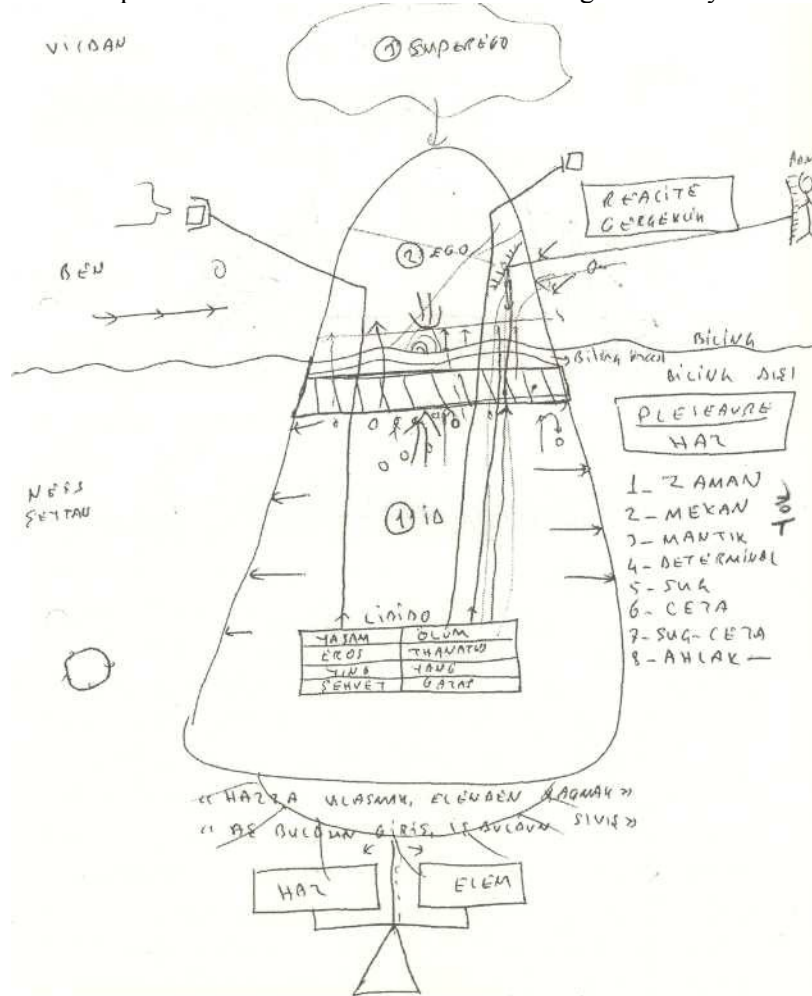 VİCDAN
③ SUPEREGO
REALİTE
GERÇEKLİK
② EGO
BEN
BİLİNÇ
BİLİNÇ DIŞI
PLEISAURE
HAZ
NEFS
ŞEYTAN
① İD
1- ZAMAN
2- MEKAN
3- MANTIK
4- DETERMİNAL
5- SUÇ
6- CEZA
7- SUÇ-CEZA
8- AHLAK —
LİBİDO
YAŞAM ÖLÜM
EROS THANATUS
YING YANG
ŞEHVET GAZAP
« HAZZA ULAŞMAK, ELEMDEN KAÇMAK »
« AŞ BULDUN GİRİŞ, İŞ BULDUN SIVIŞ »
HAZ
ELEM